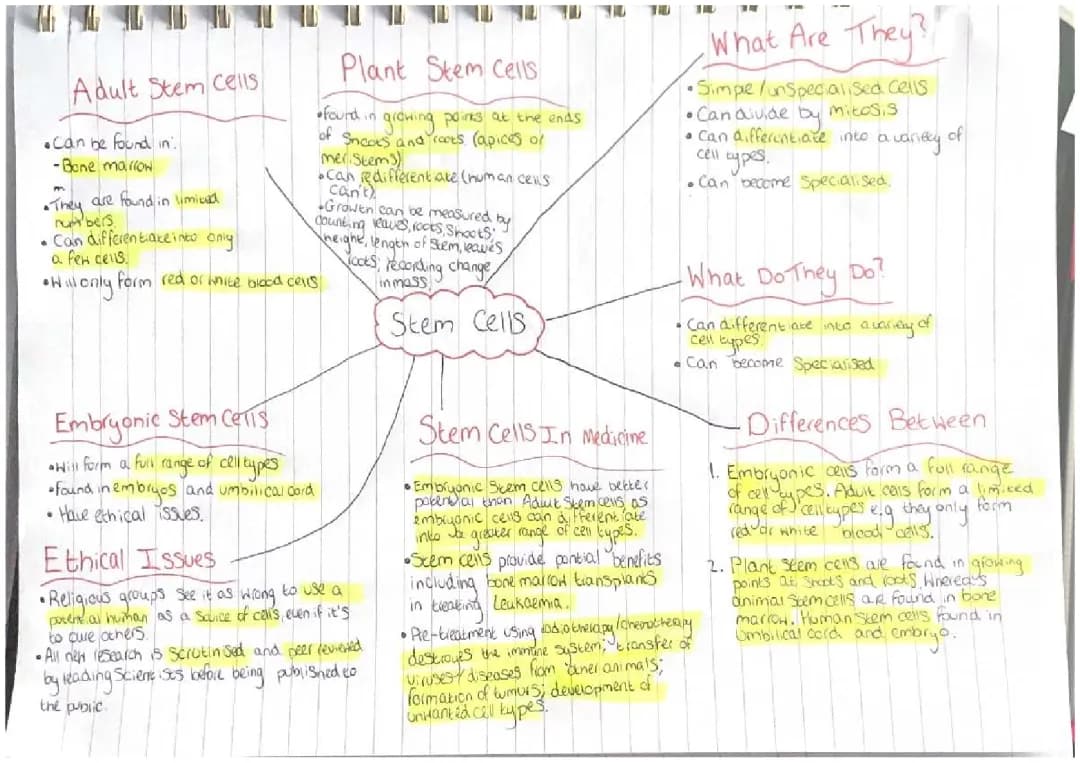 Adult Stem Cells
• Can be found in:
- Bone marrow
m
• They are found in limited
numbers.
• Can differentiate into only
a few cells.
• Will only form red or white blood cells
Plant Stem Cells
• Found in growing points at the ends
of shoots and roots. (apices or
meristems)
• Can redifferentiate (human cells
can't).
• Growth can be measured by
counting leaves, roots, shoots;
height, length of stem, leaves
roots; recording change
in mass.
What Are They?
• Simple/unspecialised cells
• Can divide by mitosis
• Can differentiate into a variety of
cell types.
• Can become specialised.
Stem Cells
What Do They Do?
• Can differentiate into a variety of
cell types
• Can become specialised
Embryonic Stem Cells
• Will form a full range of cell types
• Found in embryos and umbilical cord
• Have ethical issues.
Ethical Issues
• Religious groups see it as wrong to use a
potential human as a source of cells, even if it's
to cure others.
• All new research is scrutinised and peer reviewed
by leading scientists before being published to
the public.
Stem Cells In Medicine
• Embryonic stem cells have better
potential than Adult stem cells as
embryonic cells can differentiate
into greater range of cell types.
• Stem cells provide pontial benefits
including bone marrow transplants
in treating leukaemia.
• Pre-treatment using radiotherapy/chemotherapy
destroyes the immune system; transfer of
viruses/diseases from other animals;
formation of tumurs; development of
unwanted cell types.
Differences Between
1. Embryonic cells form a full range
of cell types. Adult cells form a limited
range of cell types e.g they only form
red or white blood cells.
2. Plant stem cells are found in growing
points at shoots and roots. Whereas
animal stem cells are found in bone
marrow. Human stem cells found in
umbilical cord and embryo.